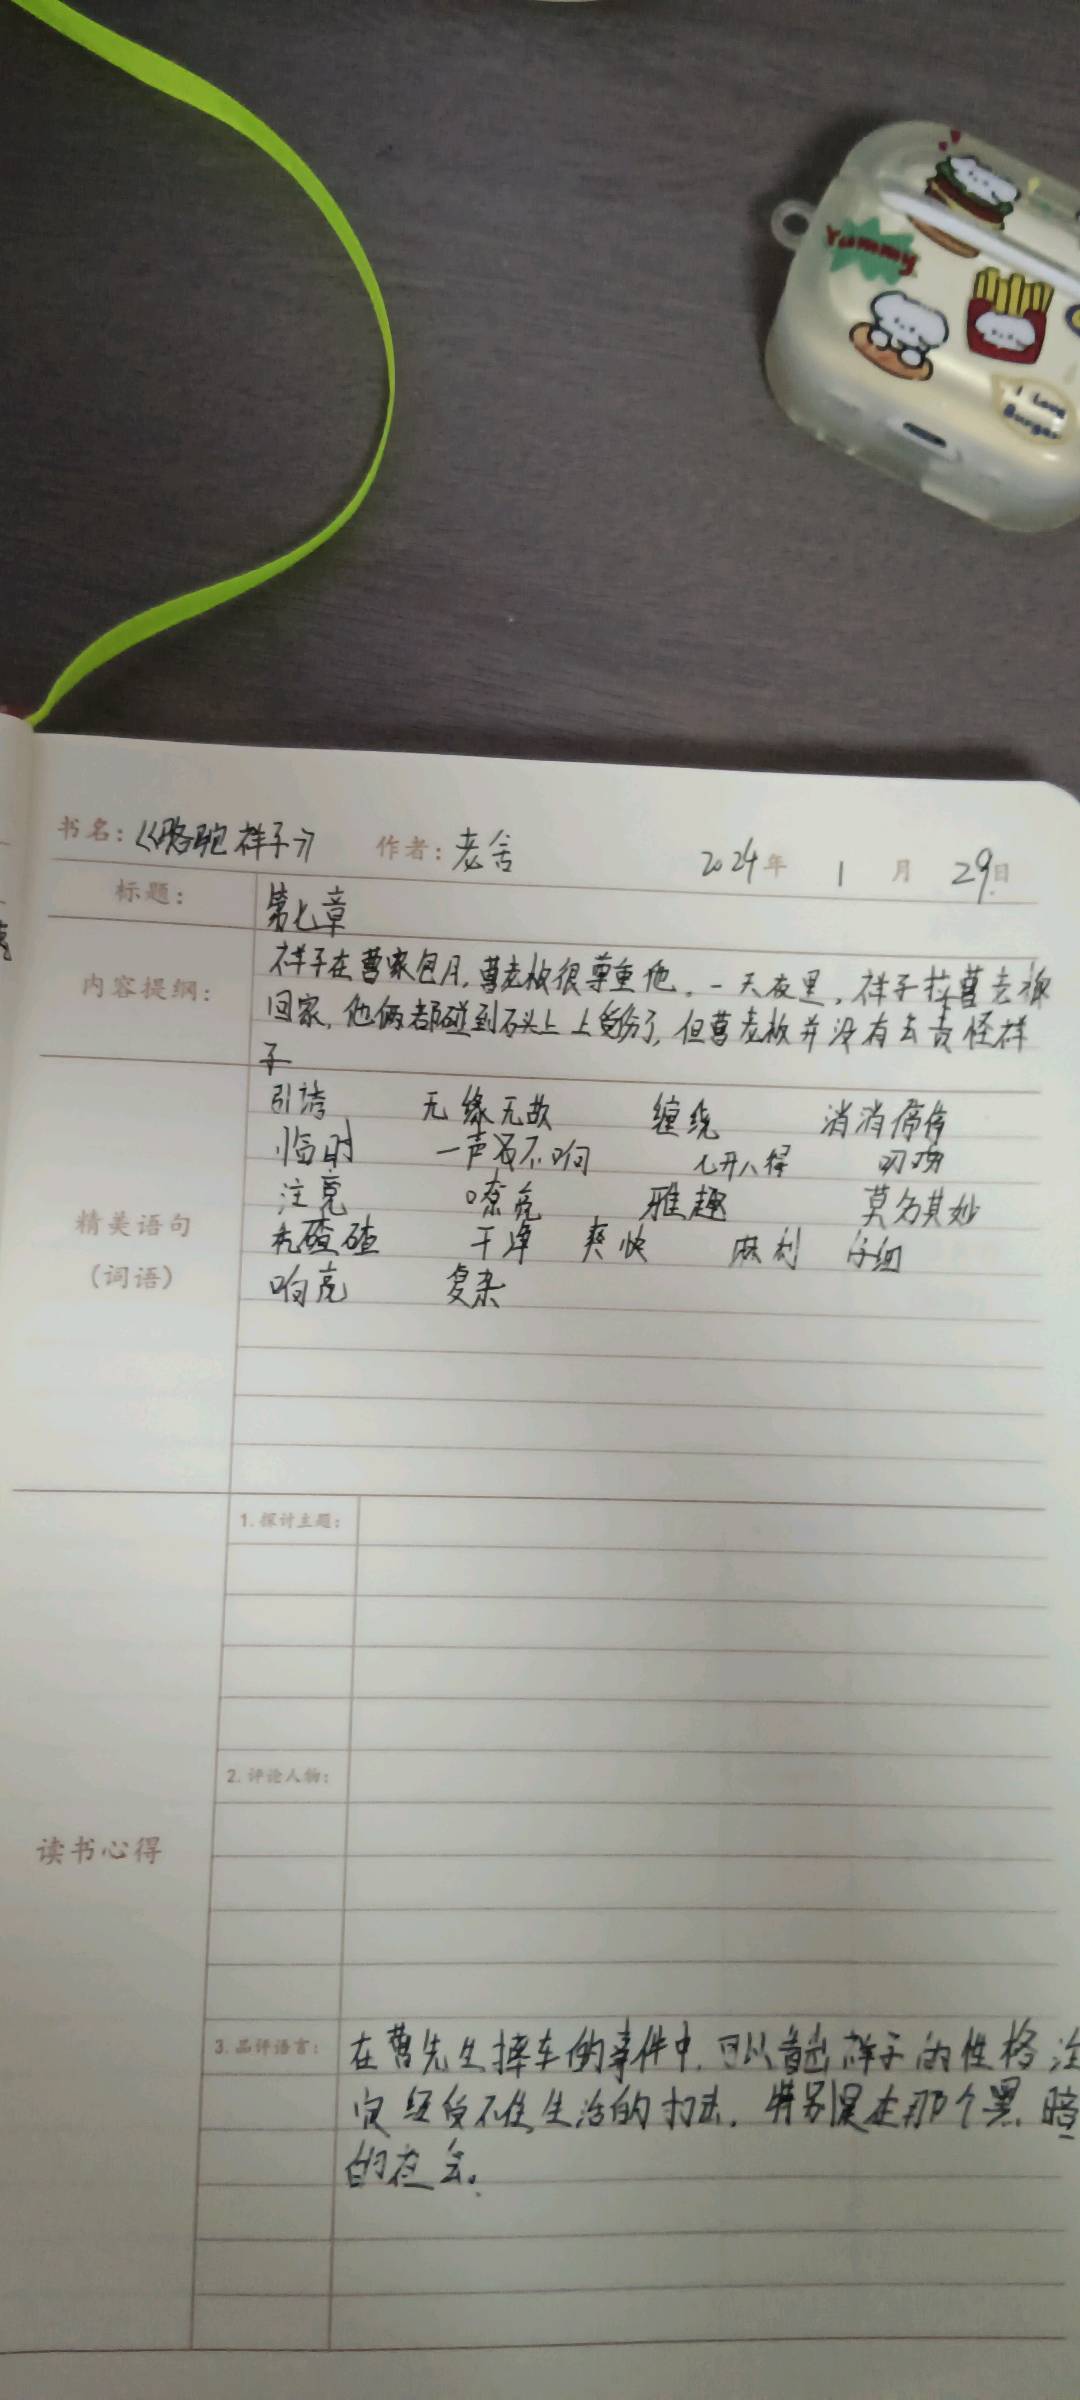 Yummy
I Love
Burger
书名:《骆驼祥子》 作者:老舍 2024年 1月 29日
标题: 第七章
内容提纲: 祥子在曹家包月,曹老板很尊重他。一天夜里,祥子拉曹老板
回家,他俩都碰到石头上上受伤了,但曹老板并没有去责怪祥
子
引诱 无缘无故 缠绕 消消停停
临时 一声不响 七开八得 叨唠
注意 嘹亮 雅趣 莫名其妙
精美语句
(词语)
碴碴 干净 爽快 麻利 仔细
响亮 复杂
读书心得
1.探讨主题:
2.评论人物:
3.品评语言: 在曹先生摔车的事件中,可以看出祥子的性格注
定经受不住生活的打击,特别是在那个黑暗
的社会。